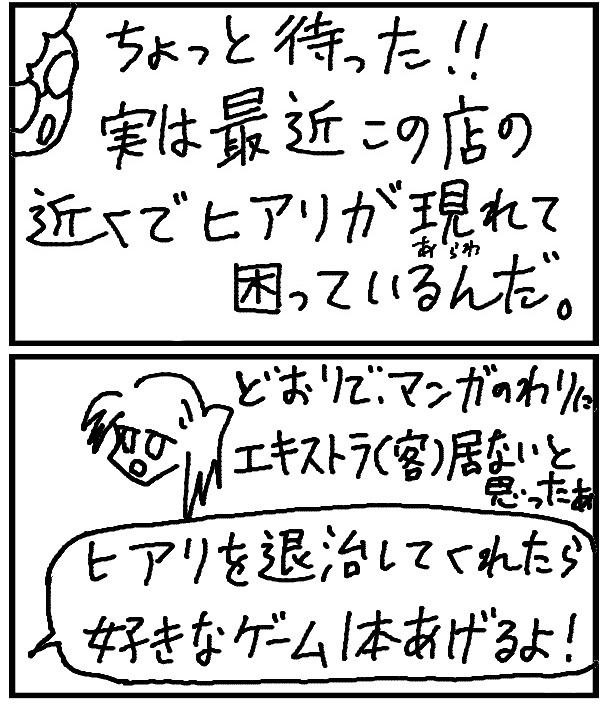 ちょっと待った!!
実は最近この店の
近くでヒアリが現れて
あらわ
困っているんだ。
どおりで、マンガのわりに
エキストラ(客)居ないと
思ったぁ
ヒアリを退治してくれたら
好きなゲーム1本あげるよ!